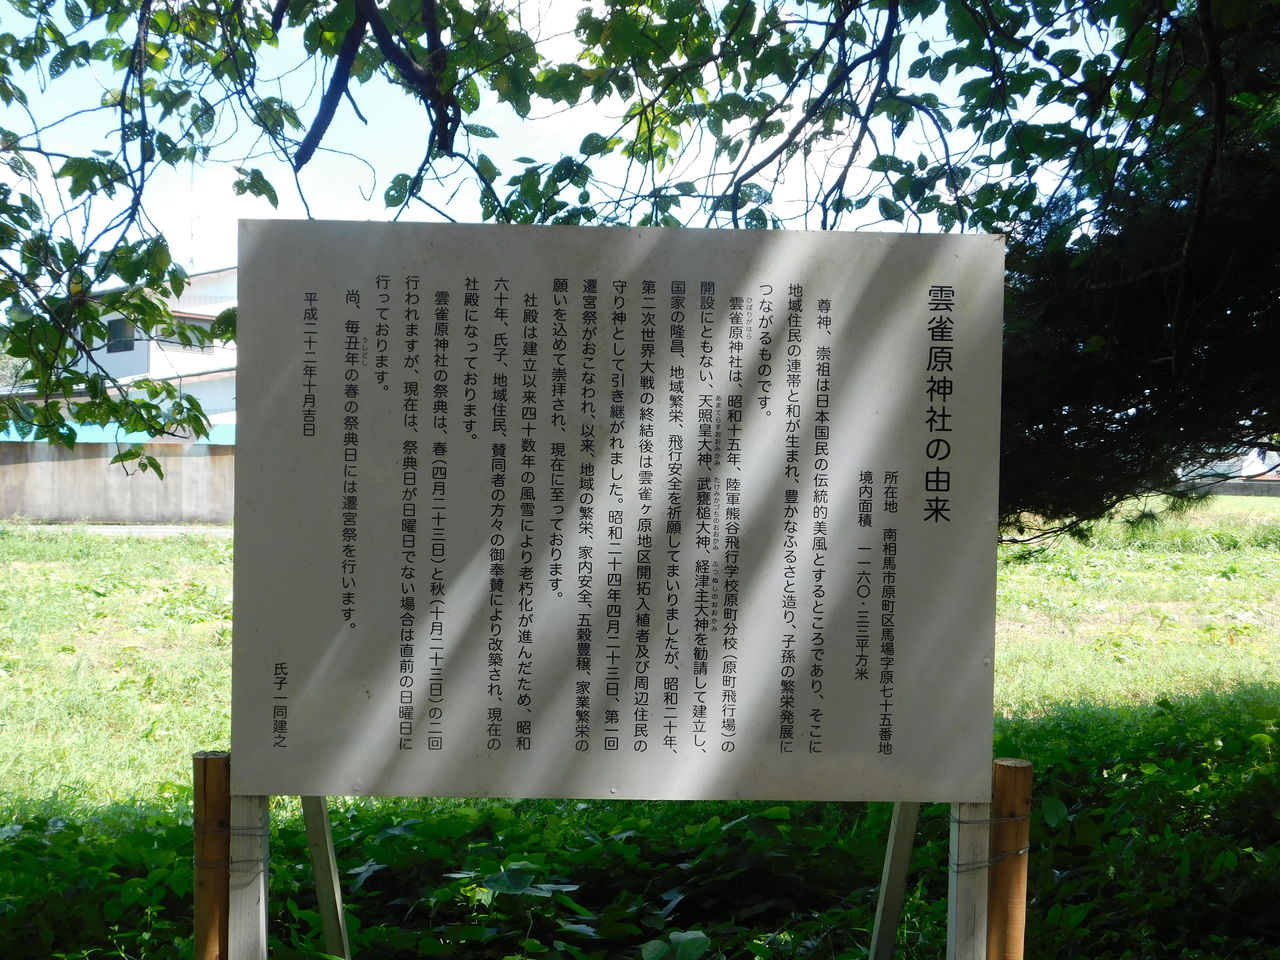 雲雀原神社の由来
所在地　南相馬市原町区馬場字原七十五番地
境内面積　一一六〇・三三平方米
尊神、崇祖は日本国民の伝統的美風とするところであり、そこに
地域住民の連帯と和が生まれ、豊かなふるさと造り、子孫の繁栄発展に
つながるものです。
ひばりがはら
雲雀原神社は、昭和十五年、陸軍熊谷飛行学校原町分校（原町飛行場）の
あまてらすおおみかみ　たけみかづちのおおかみ　ふつぬしのおおかみ
開設にともない、天照皇大神、武甕槌大神、経津主大神を勧請して建立し、
国家の隆昌、地域繁栄、飛行安全を祈願してまいりましたが、昭和二十年、
第二次世界大戦の終結後は雲雀ヶ原地区開拓入植者及び周辺住民の
守り神として引き継がれました。昭和二十四年四月二十三日、第一回
遷宮祭がおこなわれ、以来、地域の繁栄、家内安全、五穀豊穣、家業繁栄の
願いを込めて崇拝され、現在に至っております。
社殿は建立以来四十数年の風雪により老朽化が進んだため、昭和
六十年、氏子、地域住民、賛同者の方々の御奉賛により改築され、現在の
社殿になっております。
雲雀原神社の祭典は、春（四月二十三日）と秋（十月二十三日）の二回
行われますが、現在は、祭典日が日曜日でない場合は直前の日曜日に
行っております。
うしどし
尚、毎丑年の春の祭典日には遷宮祭を行います。
平成二十二年十月吉日
氏子一同建之